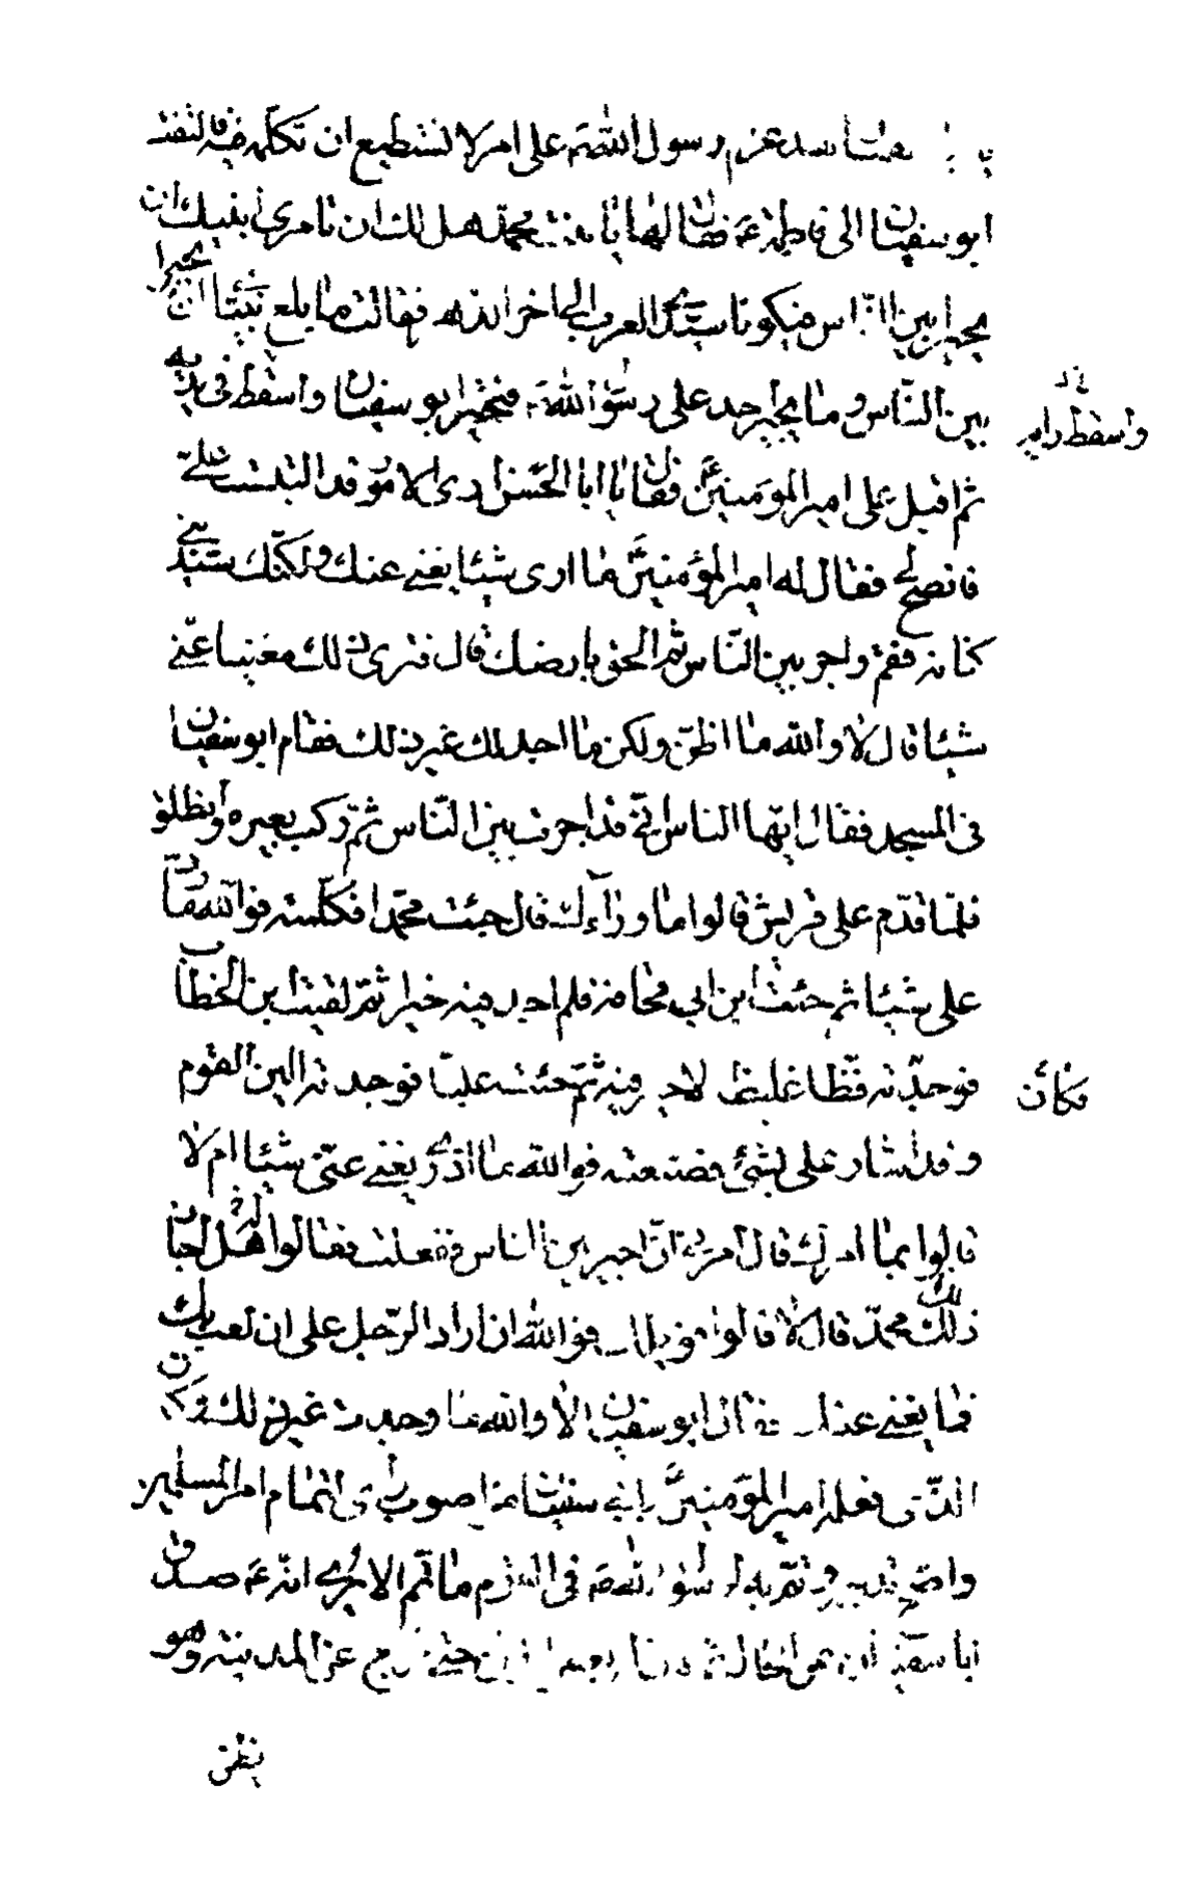 رسول الله ص على امر لا نستطيع ان نكلّمه فيه فالتفت
ابو سفيان الى فاطمة ع فقال لها يا بنت محمّد هل لك ان تامرى ابنيك ان
يجيرا بين النّاس فيكونا سيّدى العرب الى اخر الدّهر فقالت ما بلغ بنيّنا ان يجيرا
بين النّاس وما يجير احد على رسول الله ص فتحيّر ابو سفيان واسقط فى يديه
واسقط رايه
ثم اقبل على امير المؤمنين ع فقال يا ابا الحسن ارى الامور قد التبست علىّ
فانصح لى فقال له امير المؤمنين ع ما ارى شيئا يغنى عنك ولكنّك سيّد بنى
كنانه فقم واجر بين النّاس ثم الحق بارضك قال فترى ذلك مغنيا عنّى
شيئا قال لا والله ما اظنّ ولكن ما اجد لك غير ذلك فقام ابو سفيان
فى المسجد فقال ايّها الناس انّى قد اجرت بين النّاس ثمّ ركب بعيره وانطلق
فلمّا قدم على قريش قالوا ما وراءك قال جئت محمّدا فكلّمته فو الله ما ردّ
على شيئا ثم جئت ابن ابى قحافة فلم اجد فيه خيرا ثمّ لقيت ابن الخطاب
فوجدته فظّا غليظا لا خير فيه ثمّ جئت عليّا فوجدته الين القوم
فكان
وقد اشار على بشئ فصنعته فو الله ما ادرى يغنى عنّى شيئا ام لا
قالوا بما امرك قال امرنى ان اجير بين الناس ففعلت فقالوا هل اجاز
ذلك محمّد قال لا قالوا ويلك فو الله ان زاد الرّجل على ان لعب بك
فما يغنى عنك فقال ابو سفيان لا والله ما وجدت غير ذلك وكان
الذّى فعله امير المؤمنين ع بابى سفيان من اصوب راى لتمام امر المسلمين
واصحّ تدبير وتمّ به لرسول الله ص فى القوم ما تمّ الا يرى انّه ع صدق
ابا سفين عن الحال ثم حتّى خرج عن المدينة وهو
يظنّ